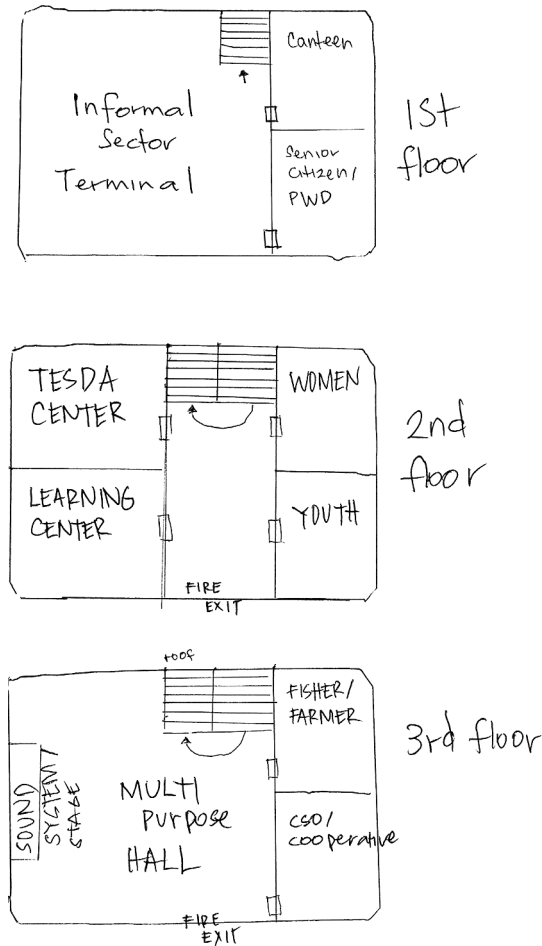 Canteen
Informal
Sector
Terminal
Senior
Citizen/
PWD
1st
floor
TESDA
CENTER
WOMEN
LEARNING
CENTER
YOUTH
FIRE
EXIT
2nd
floor
roof
FISHER/
FARMER
SOUND
SYSTEM/
STAGE
MULTI
Purpose
HALL
CSO/
Cooperative
FIRE
EXIT
3rd floor